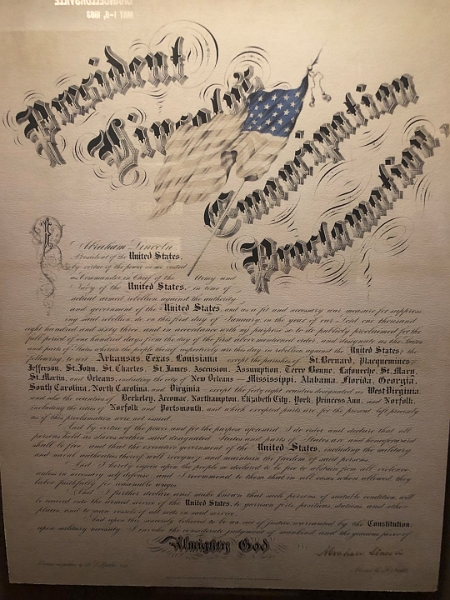 CHANCELLORSVILLE
MAY 1-5, 1863
President
Lincoln's
Emancipation
Proclamation.
I, Abraham Lincoln
President of the United States,
by virtue of the power in me vested
as Commander in Chief of the Army and
Navy of the United States, in time of
actual armed rebellion against the authority
and government of the United States, and as a fit and necessary war measure for suppressing
said rebellion, do, on this first day of January, in the year of our Lord one thousand
eight hundred and sixty three, and in accordance with my purpose so to do, publicly proclaimed for the
full period of one hundred days from the day of the first above mentioned order, and designate as the States
and parts of States wherein the people thereof respectively are this day in rebellion against the United States, the
following, to wit: Arkansas, Texas, Louisiana except the parishes of St. Bernard, Placquemines,
Jefferson, St. John, St. Charles, St. James, Ascension, Assumption, Terre Bonne, Lafourche, St. Mary,
St. Martin, and Orleans, including the city of New Orleans – Mississippi, Alabama, Florida, Georgia,
South Carolina, North Carolina, and Virginia except the forty eight counties designated as West Virginia
and also the counties of Berkeley, Accomac, Northampton, Elizabeth City, York, Princess Ann, and Norfolk,
including the cities of Norfolk and Portsmouth, and which excepted parts are, for the present left precisely
as if this proclamation were not issued.
And by virtue of the power and for the purpose aforesaid I do order and declare that all
persons held as slaves within said designated States and parts of States are and henceforward
shall be free, and that the executive government of the United States, including the military
and naval authorities thereof will recognize and maintain the freedom of said persons.
And I hereby enjoin upon the people so declared to be free to abstain from all violence
unless in necessary self defence and I recommend to them that in all cases when allowed they
labor faithfully for reasonable wages.
And I further declare and make known that such persons of suitable condition will
be received into the armed service of the United States, to garrison forts, positions, stations and other
places, and to man vessels of all sorts in said service.
And upon this sincerely believed to be an act of justice warranted by the Constitution
upon military necessity, I invoke the considerate judgment of mankind and the gracious favor of
Almighty God
Abraham Lincoln